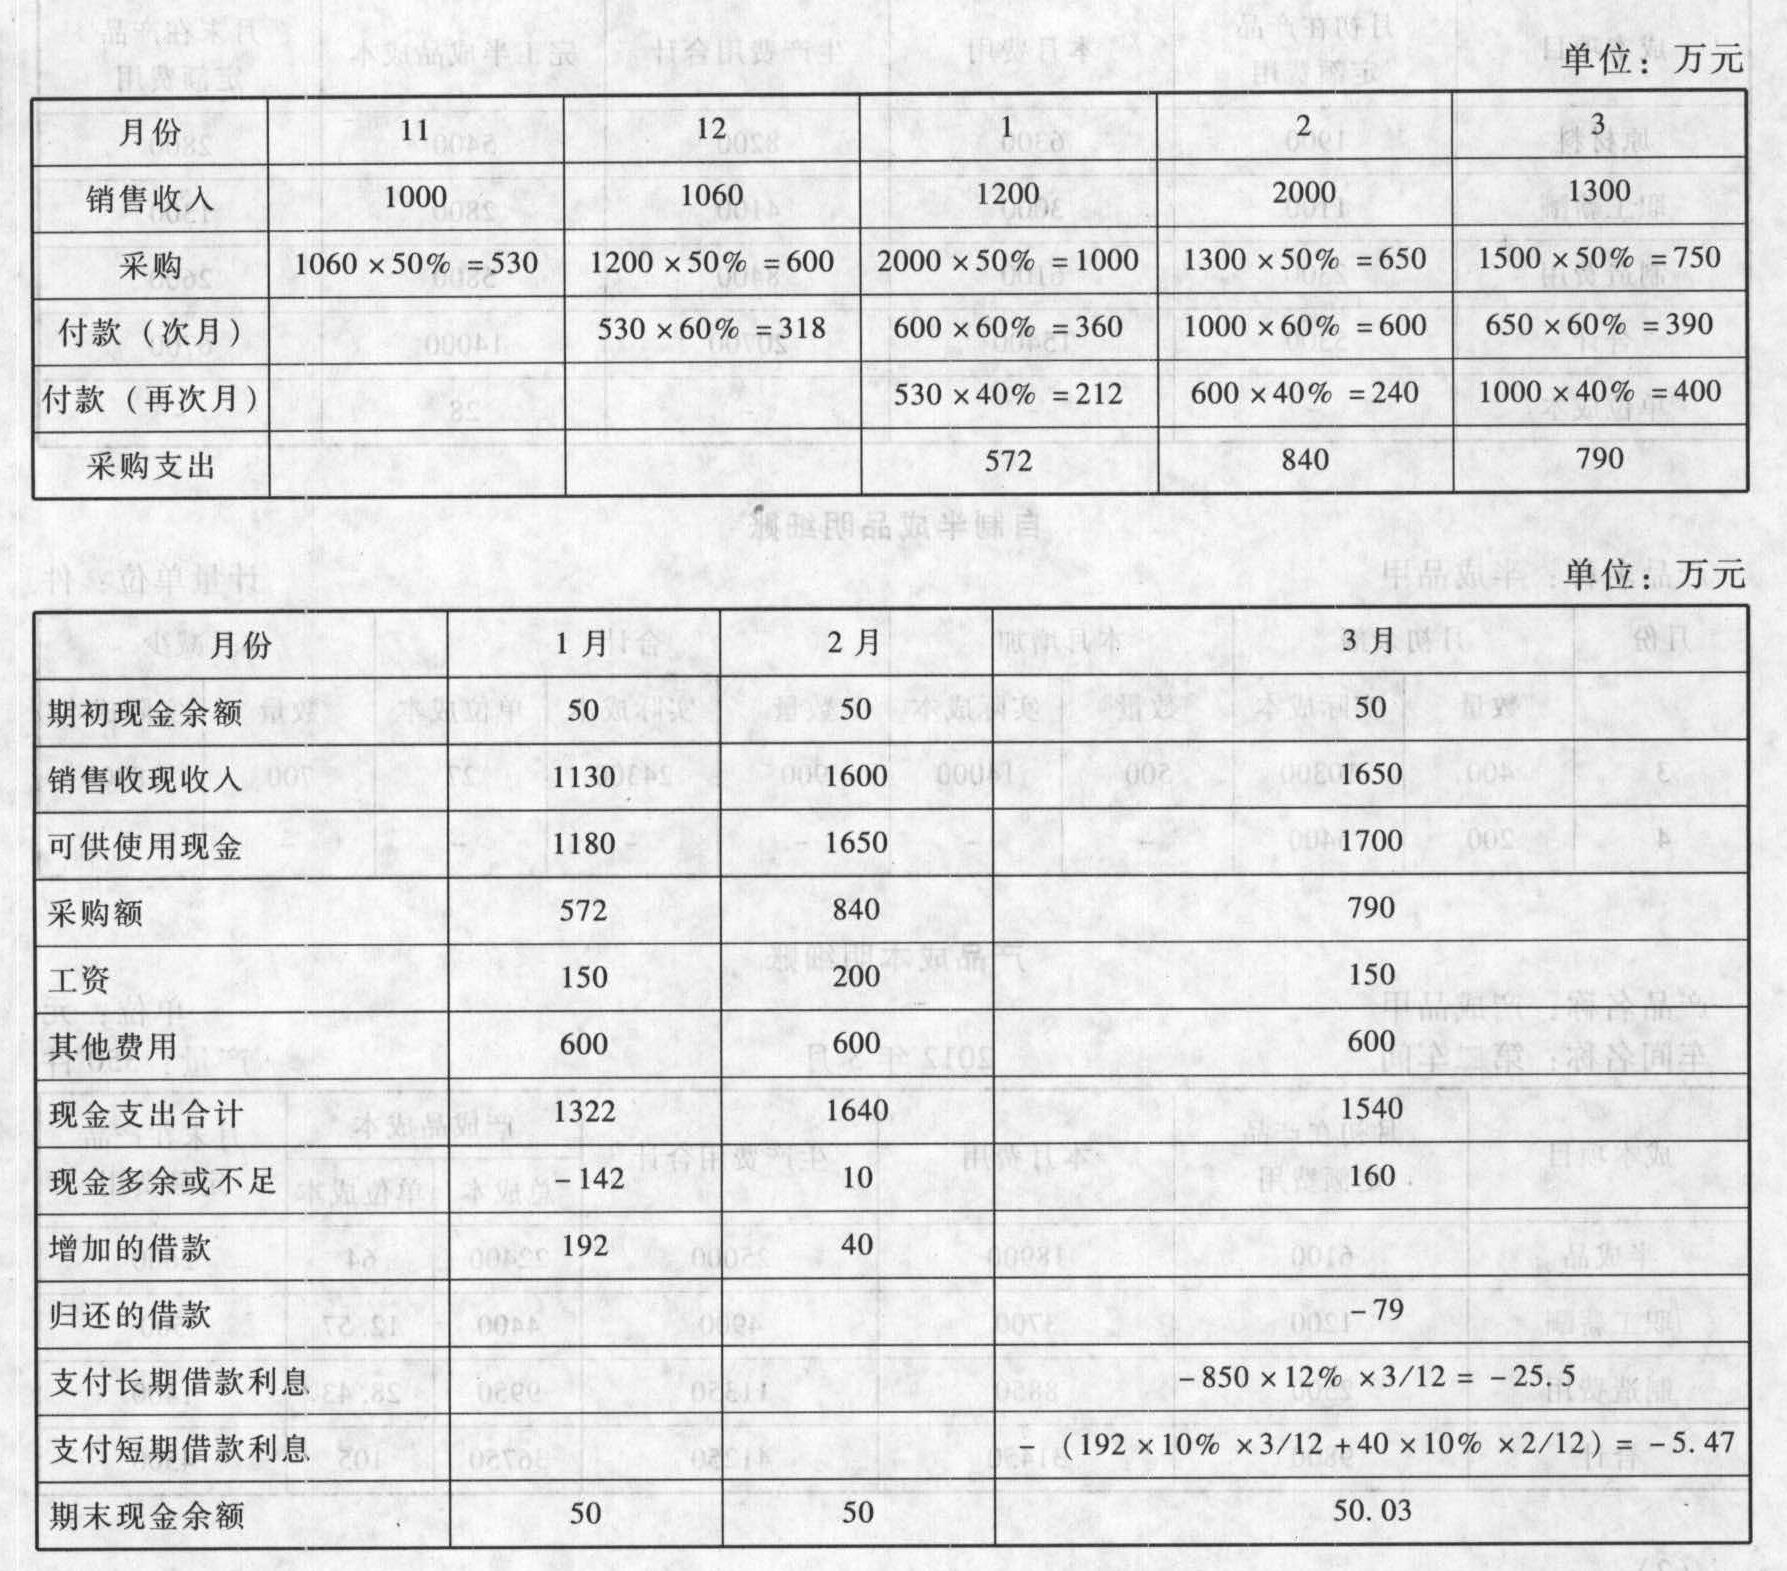 单位：万元
月份 11 12 1 2 3
销售收入 1000 1060 1200 2000 1300
采购 1060×50%=530 1200×50%=600 2000×50%=1000 1300×50%=650 1500×50%=750
付款（次月） 530×60%=318 600×60%=360 1000×60%=600 650×60%=390
付款（再次月） 530×40%=212 600×40%=240 1000×40%=400
采购支出 572 840 790
单位：万元
月份 1月 2月 3月
期初现金余额 50 50 50
销售收现收入 1130 1600 1650
可供使用现金 1180 1650 1700
采购额 572 840 790
工资 150 200 150
其他费用 600 600 600
现金支出合计 1322 1640 1540
现金多余或不足 -142 10 160
增加的借款 192 40
归还的借款 -79
支付长期借款利息 -850×12%×3/12=-25.5
支付短期借款利息 -（192×10%×3/12+40×10%×2/12）=-5.47
期末现金余额 50 50 50.03